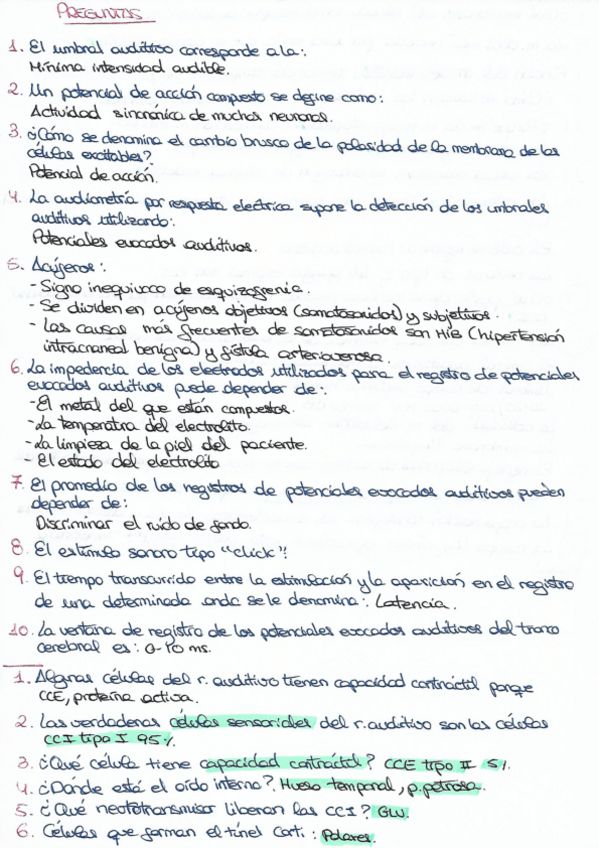 PREGUNTAS
1. El umbral auditivo corresponde a la:
Mínima intensidad audible.
2. Un potencial de acción compuesto se define como:
Actividad sincrónica de muchas neuronas.
3. ¿Cómo se denomina el cambio brusco de la polaridad de la membrana de las
células excitables?
Potencial de acción.
4. La audiometría por respuesta eléctrica supone la detección de los umbrales
auditivos utilizando:
Potenciales evocados auditivos.
5. Acúfenos:
- Signo inequívoco de esquizofrenia.
- Se dividen en acúfenos objetivos (somatosonidos) y subjetivos.
- Las causas más frecuentes de somatosonidos son HIB (hipertensión
intracraneal benigna) y fístula arteriovenosa.
6. La impedencia de los electrodos utilizados para el registro de potenciales
evocados auditivos puede depender de:
- El metal del que están compuestos.
- La temperatura del electrolito.
- La limpieza de la piel del paciente.
- El estado del electrolito
7. El promedio de los registros de potenciales evocados auditivos pueden
depender de:
Discriminar el ruido de fondo.
8. El estímulo sonoro tipo "click":
9. El tiempo transcurrido entre la estimulación y la aparición en el registro
de una determinada onda se le denomina: Latencia.
10. La ventana de registro de los potenciales evocados auditivos del tronco
cerebral es: 0-10 ms.
1. Algunas células del r. auditivo tienen capacidad contráctil porque
CCE, proteína activa.
2. Las verdaderas células sensoriales del r. auditivo son las células
CCI tipo I 95%
3. ¿Qué célula tiene capacidad contráctil? CCE tipo II 5%
4. ¿Dónde está el oído interno? Hueso temporal, p. petrosa.
5. ¿Qué neototransmisor liberan las CCI? GLU.
6. Células que forman el túnel Corti: Pilares.